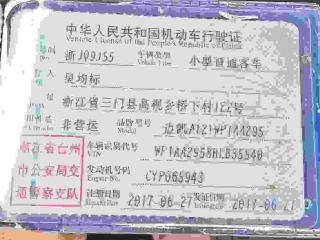 中华人民共和国机动车行驶证
Vehicle License of the People's Republic of China
浙JQ9J55 车辆类型 小型普通客车
Vehicle Type
人 吴均标
址 浙江省三门县高枧乡桥下村122号
非营运 品牌型号
Model
浙江省台州 车辆识别代号
VIN
市公安局交 发动机号码 CYP065943
Engine No.
通警察支队 注册日期 2017-06-27 发证日期 2017-06-27
Register Date Issue Date